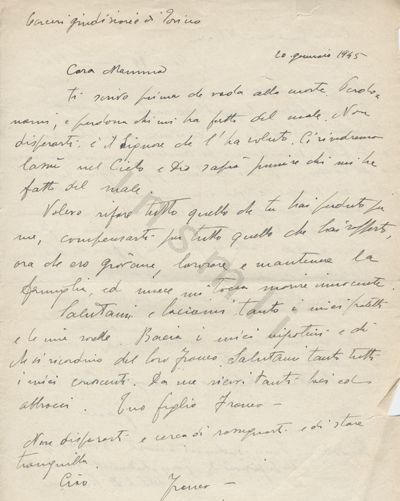 Carceri giudiziarie di Torino
20 gennaio 1945
Cara Mamma
ti scrivo prima de vada alla morte. Perdo-
nami, e perdona chi mi ha fatto del male. Non
disperarti è il Signore che l'ha voluto. Ci rivedremo
lassù nel Cielo e Dio saprà punire chi mi ha
fatto del male.
Volevo rifare tutto quello che tu hai perduto per
me, compensarti per tutto quello che hai sofferto,
ora che ero giovane, lavorare e mantenere la
famiglia, ed invece mi tocca morire innocente.
Salutami e baciami tanto i miei fratelli
e le mie sorelle. Bacia i miei nipotini e di
che si ricordino del loro Franco. Salutami tanto tutti
i miei conoscenti. Da me ricevi tanti baci ed
abbracci. Tuo figlio Franco -
Non disperarti e cerca di rassegnarti e di stare
tranquilla.
Ciao Franco -